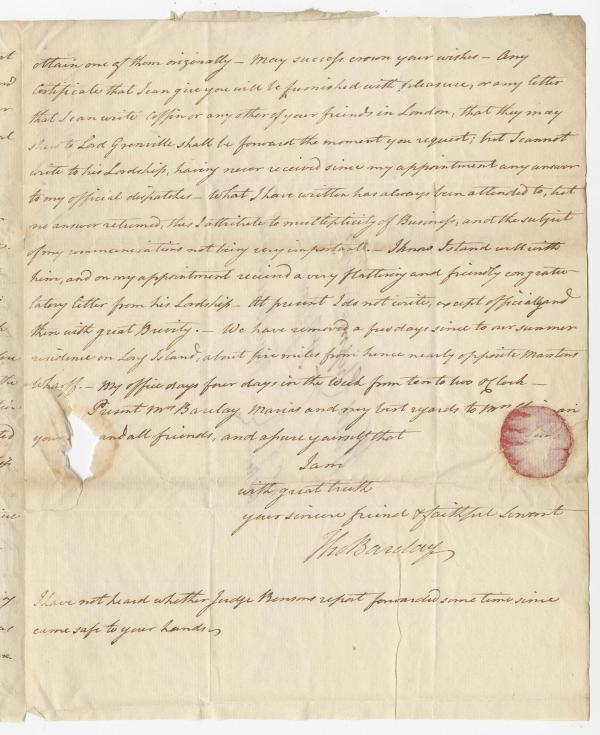 attain one of them originally – May success crown your wishes – Any
Certificate that I can give you will be furnished with pleasure, or any letter
that I can write Coffin or any other of your friends in London, that they may
shew to Lord Grenville shall be forward the moment you request; but I cannot
write to his Lordship, having never received since my appointment any answer
to my official dispatches – What I have written has always been attended to, but
no answer returned, this I attribute to multiplicity of Business, and the subject
of my communications not being very important. – I knew Island well with
him, and on my appointment received a very flattering and friendly congratu-
latory letter from his Lordship – At present I do not write, except officially and
then with great Brevity. – We have removed a few days since to our summer
residence on Long Island, about five miles from hence nearly opposite Marstons
Wharff. – My office days four days in the Week from ten to two oClock –
Present Mrs Barclay, Marias and my best regards to Mrs
your and all friends, and assure yourself that
I am
with great truth
your sincere friend & faithful Servant
Tho Barclay
I have not heard whether Judge Bensons report forwarded some time since
came safe to your hands